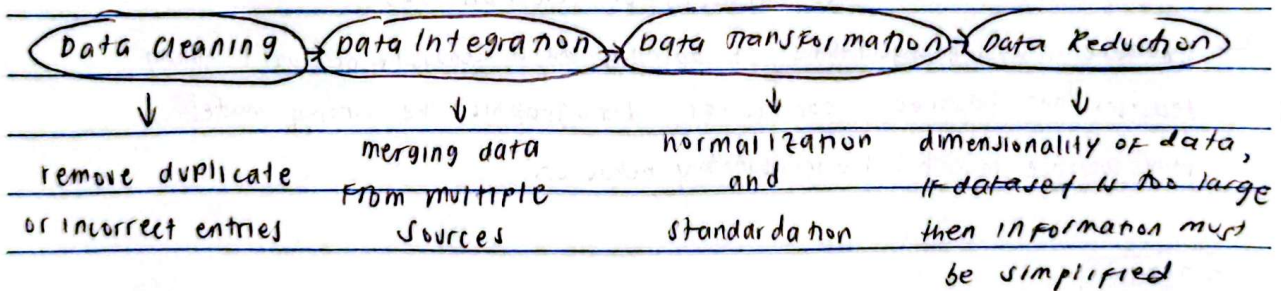 Data Cleaning → Data Integration → Data Transformation → Data Reduction
↓ ↓ ↓ ↓
remove duplicate
or incorrect entries
merging data
from multiple
sources
normalization
and
standardation
dimensionality of data,
if dataset is too large
then information must
be simplified